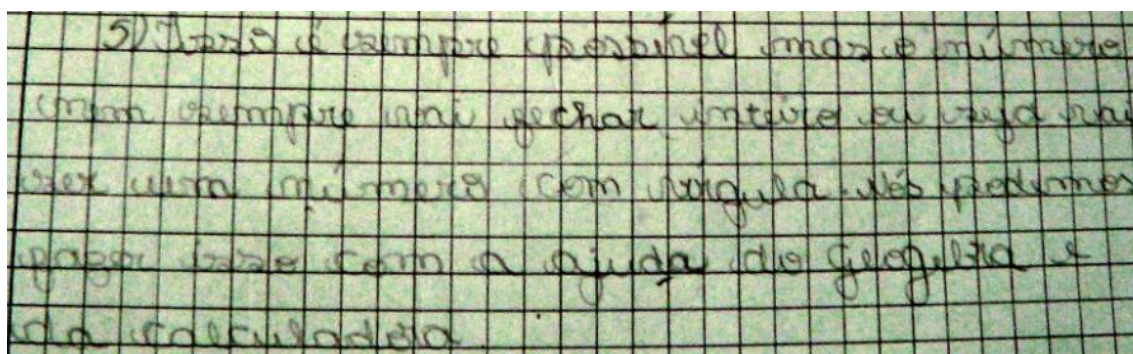 5) Isso é sempre possivel mas o número
nem sempre vai fechar inteiro ou seja vai
ser um número com vírgula. Nós podemos
fazer isso com a ajuda do geogebra e
da calculadora